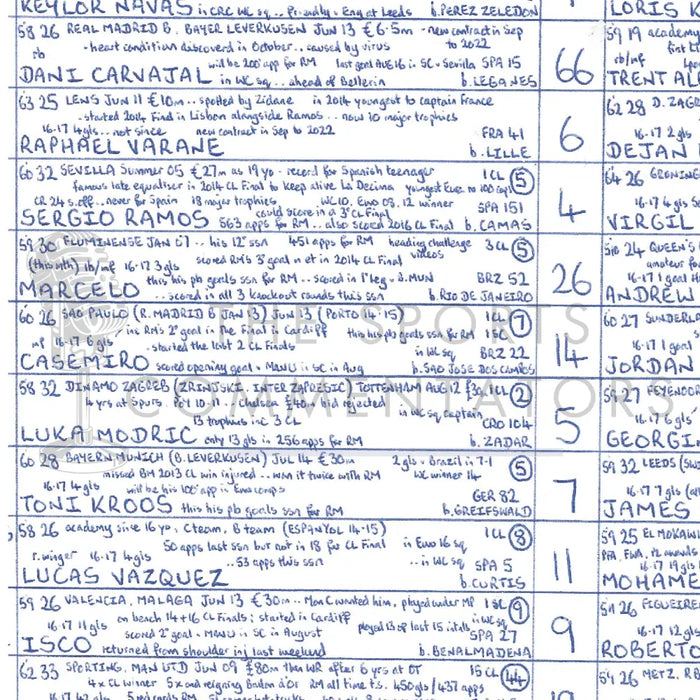 KEYLOR NAVAS in CRC WC sq b. PEREZ ZELEDON 1
58 26 REAL MADRID B, BAYER LEVERKUSEN JUN 13 €6.5m - new contract in Sep to 2022
rb - heart condition discoverd in October.. caused by virus
will be 200th app for RM last goal AUG 16 in SC v Sevilla SPA 15
DANI CARVAJAL in WC sq.. ahead of Bellerin b. LEGANES 66
63 25 LENS JUN 11 €10m.. spotted by Zidane in 2014 youngest to captain France
- started 2014 Final in Lisbon alongside Ramos.. now 10 major trophies
16-17 4gls.. not since new contract in Sep to 2022 FRA 41
RAPHAEL VARANE b. LILLE 6
60 32 SEVILLA Summer 05 €27m as 19 yo - record for Spanish teenager 1CL 5
famous late equaliser in 2014 CL Final to keep alive La Decima youngest Euro to 100 caps
CR 24 s.off.. never for Spain 18 major trophies WC10, Euro 08, 12 winner SPA 151
could score in a 3rd CL Final
SERGIO RAMOS 563 apps for RM.. also scored 2016 CL Final b. CAMAS 4
59 30 FLUMINENSE JAN 07.. his 12th ssn 451 apps for RM heading challenge videos 3CL 5
(this mth) lb/mf 16-17 3gls scored RM's 3rd goal n et in 2014 CL Final
this his pb goals ssn for RM.. scored in 1st leg v B.MUN BRZ 52
MARCELO ... scored in all 3 knockout rounds this ssn b. RIO DE JANEIRO 26
60 26 SAO PAULO (R. MADRID B JAN 13) JUN 13 (PORTO 14-15) 1CL 7
.. inc RM's 2nd goal in the Final in Cardiff this his pb goals ssn for RM 1SC
mf 16-17 6gls - started the last 2 CL Finals in WC sq BRZ 22
CASEMIRO scored opening goal v MAN U in SC in Aug b. SAO JOSE DOS CAMPOS 14
58 32 DINAMO ZAGREB (ZRINJSKI, INTER ZAPRESIC) TOTTENHAM AUG 12 1CL 2
4 yrs at Spurs.. Chelsea £40m bid rejected in WC sq captain
13 trophies inc 3 CL CRO 104
LUKA MODRIC only 13 gls in 256 apps for RM b. ZADAR 5
60 28 BAYERN MUNICH (B. LEVERKUSEN) JUL 14 €30m 2 gls v Brazil in 7-1 5
missed BM 2013 CL win injured.. won it twice with RM WC winner 14
16-17 4gls will be his 100th app in Euro comps GER 82
TONI KROOS this his pb goals ssn for RM b. GREIFSWALD 7
58 26 academy since 16 yo, C team, B team (ESPANYOL 14-15) 1CL 8
50 apps last ssn but not in 18 for CL Final in Euro 16 sq
r.winger 16-17 4gls .. 53 apps this ssn .. in WC sq SPA 5
LUCAS VAZQUEZ b. CURTIS 11
59 26 VALENCIA, MALAGA JUN 13 €30m.. Man C wanted him, played under MP 1SC 9
16-17 11gls on bench 14+16 CL Finals; started in Cardiff played 13 of last 15 intals in WC sq
scored 2nd goal v MAN U in SC in August SPA 27
ISCO returned from shoulder inj last weekend b. BENALMADENA 9
62 33 SPORTING, MAN UTD JUN 09 £80m then WR after 6 yrs at OT 15CL 44
4x CL winner 5x and reigning Ballon d'Or RM all time t.s. 450gls/437 apps
LORIS K
59 19 academy
rb/mf
TRENT AL
62 28 D. ZAG
16-17 2gls
DEJAN
64 26 GRONING
16-17 4gls
VIRGIL
24 QUEEN'S
amateur
16-17 1 goal
ANDREW
60 27 SUNDERLA
16-17 1 goal
JORDAN
27 FEYENOOR
16-17 6gls
GEORGIN
59 32 LEEDS
16-17 7gls
JAMES
59 25 EL MOKAW
16-17 19gls
MOHAME
26 FIGUEIRE
16-17 12gls
ROBERTO
59 26 METZ, R
THE SPORTS
COMMENTATORS